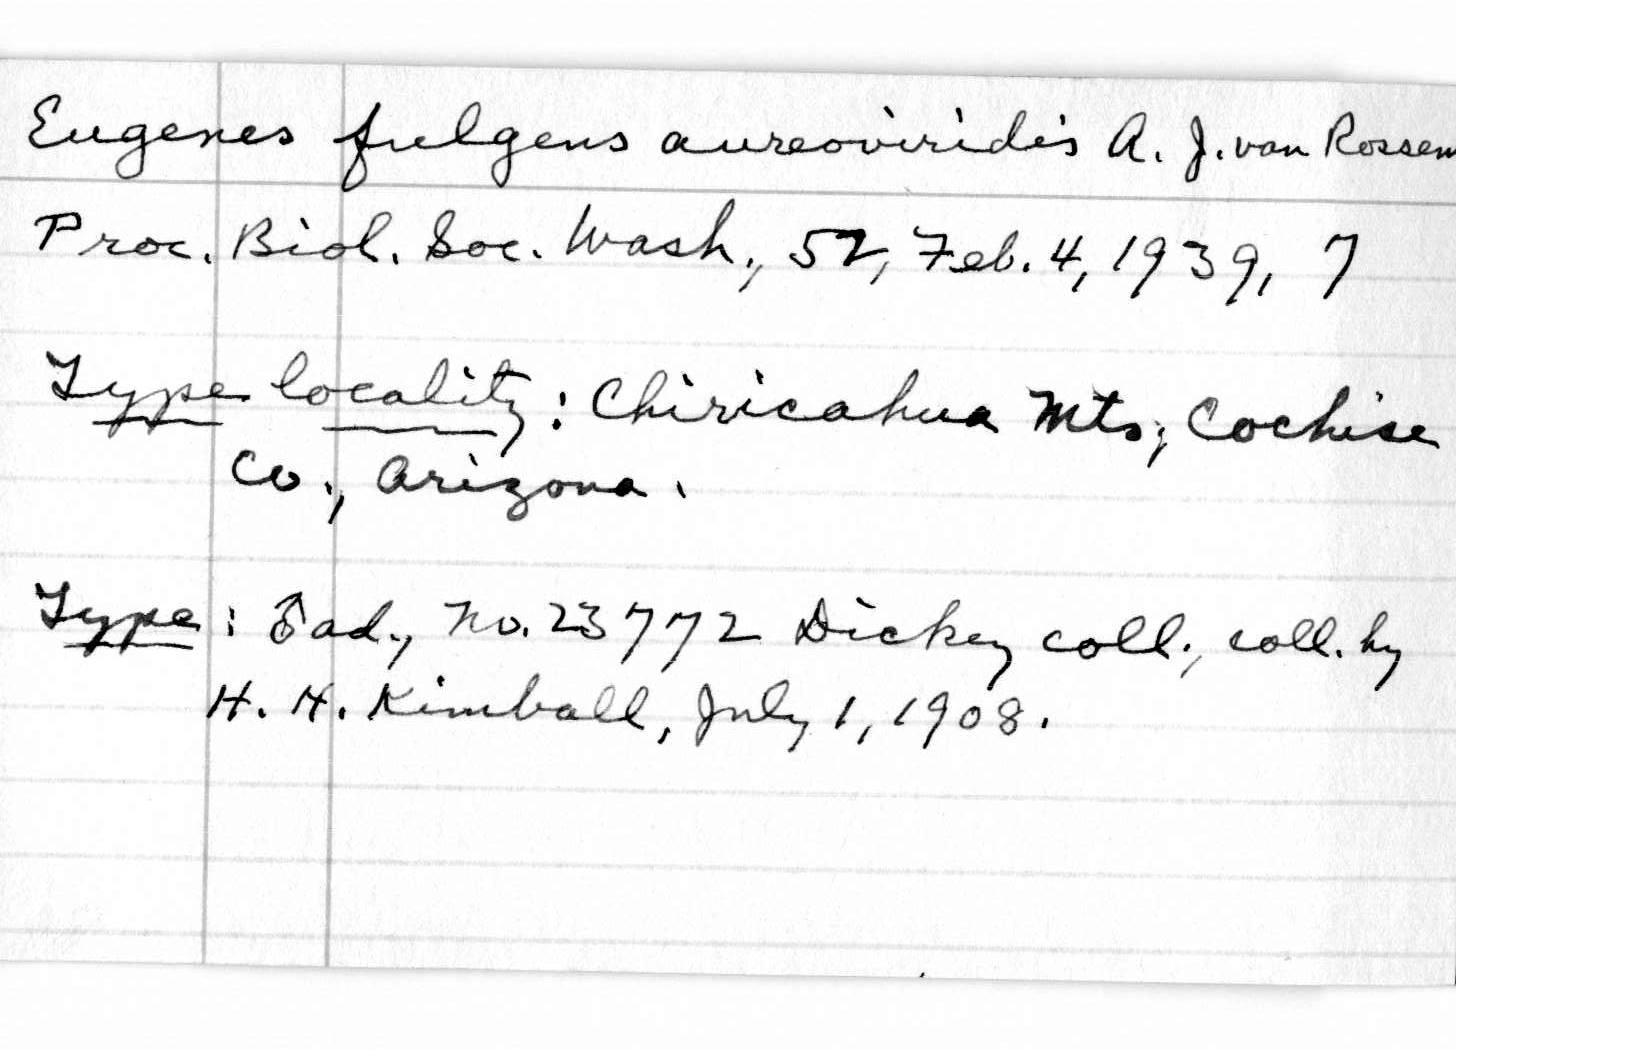 Eugenes fulgens aureoviridis A. J. van Rossem
Proc. Biol. Soc. Wash., 52, Feb. 4, 1939, 7
Type locality: Chiricahua Mts; Cochise
Co., Arizona.
Type: ♂ ad., No. 23772 Dickey coll., coll. by
H. H. Kimball, July 1, 1908.